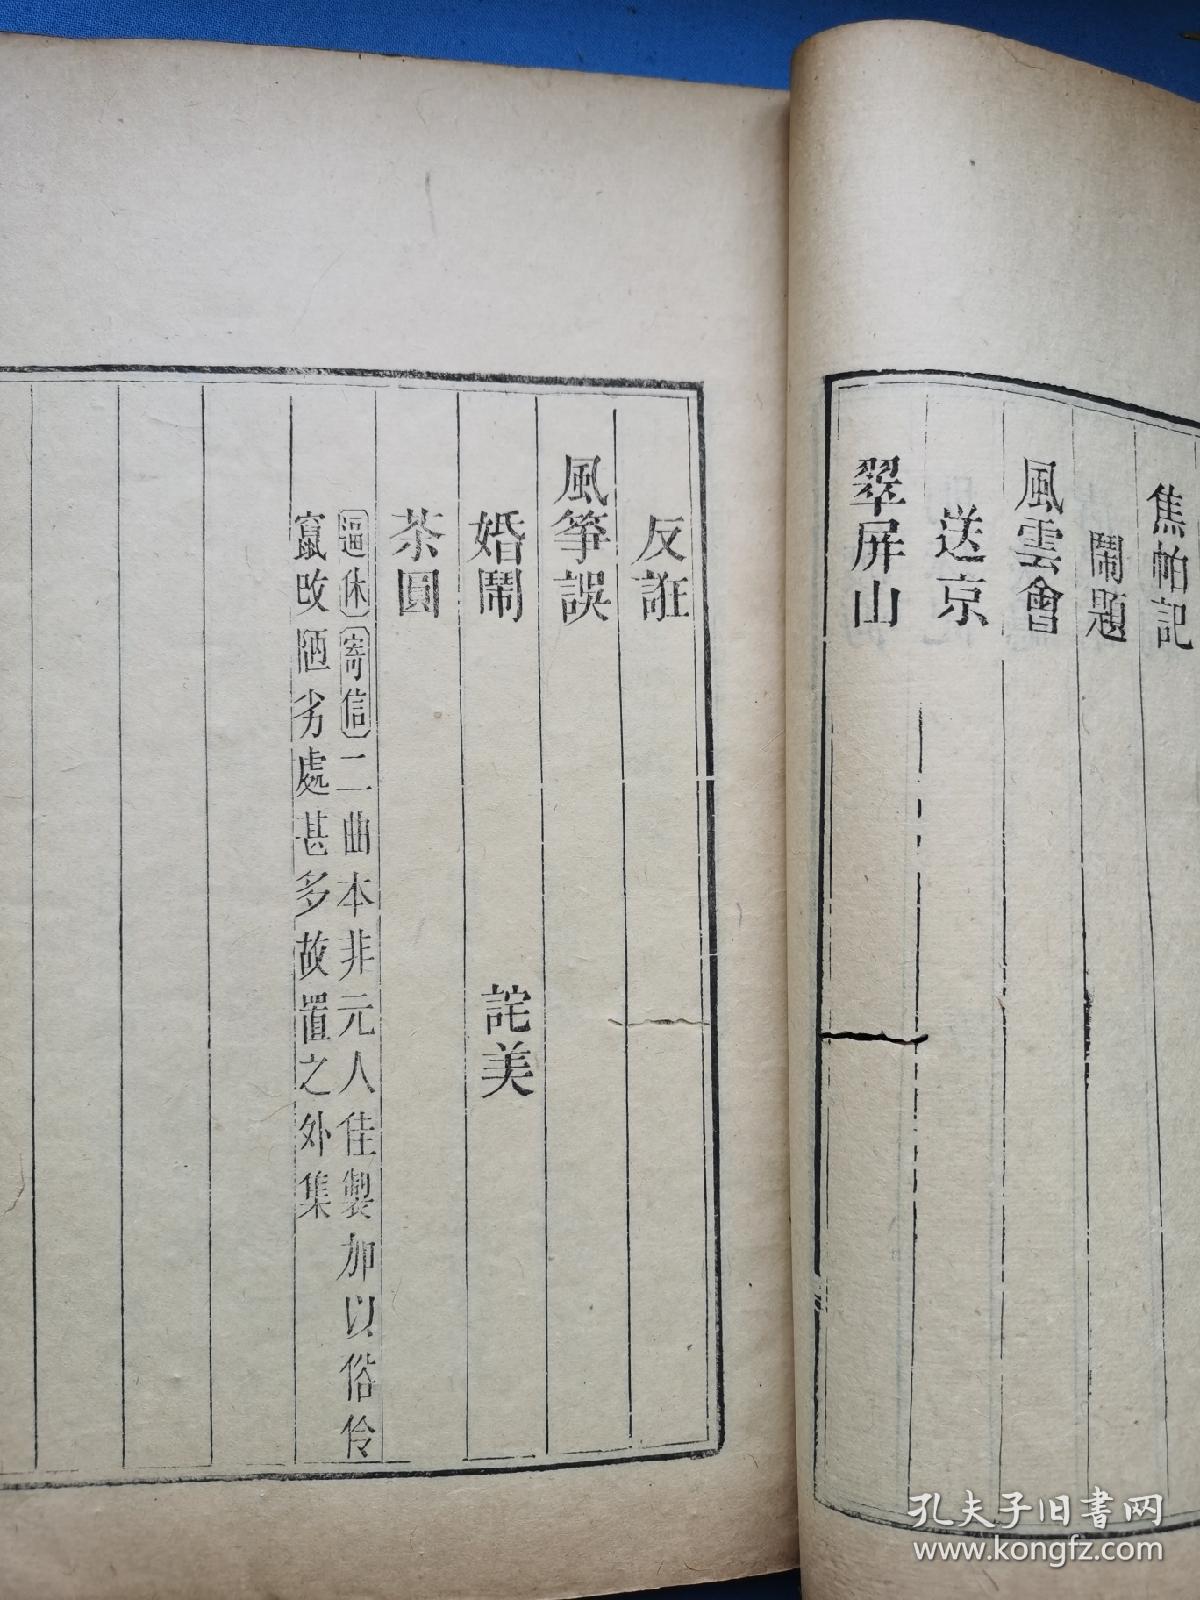 焦帕記
鬧題
風雲會
送京
翠屏山
反誑
風筝誤
婚鬧 詫美
茶圓
逼休寄信二曲本非元人佳製加以俗伶
竄改陋劣處甚多故置之外集
孔夫子旧書网
www.kongfz.com